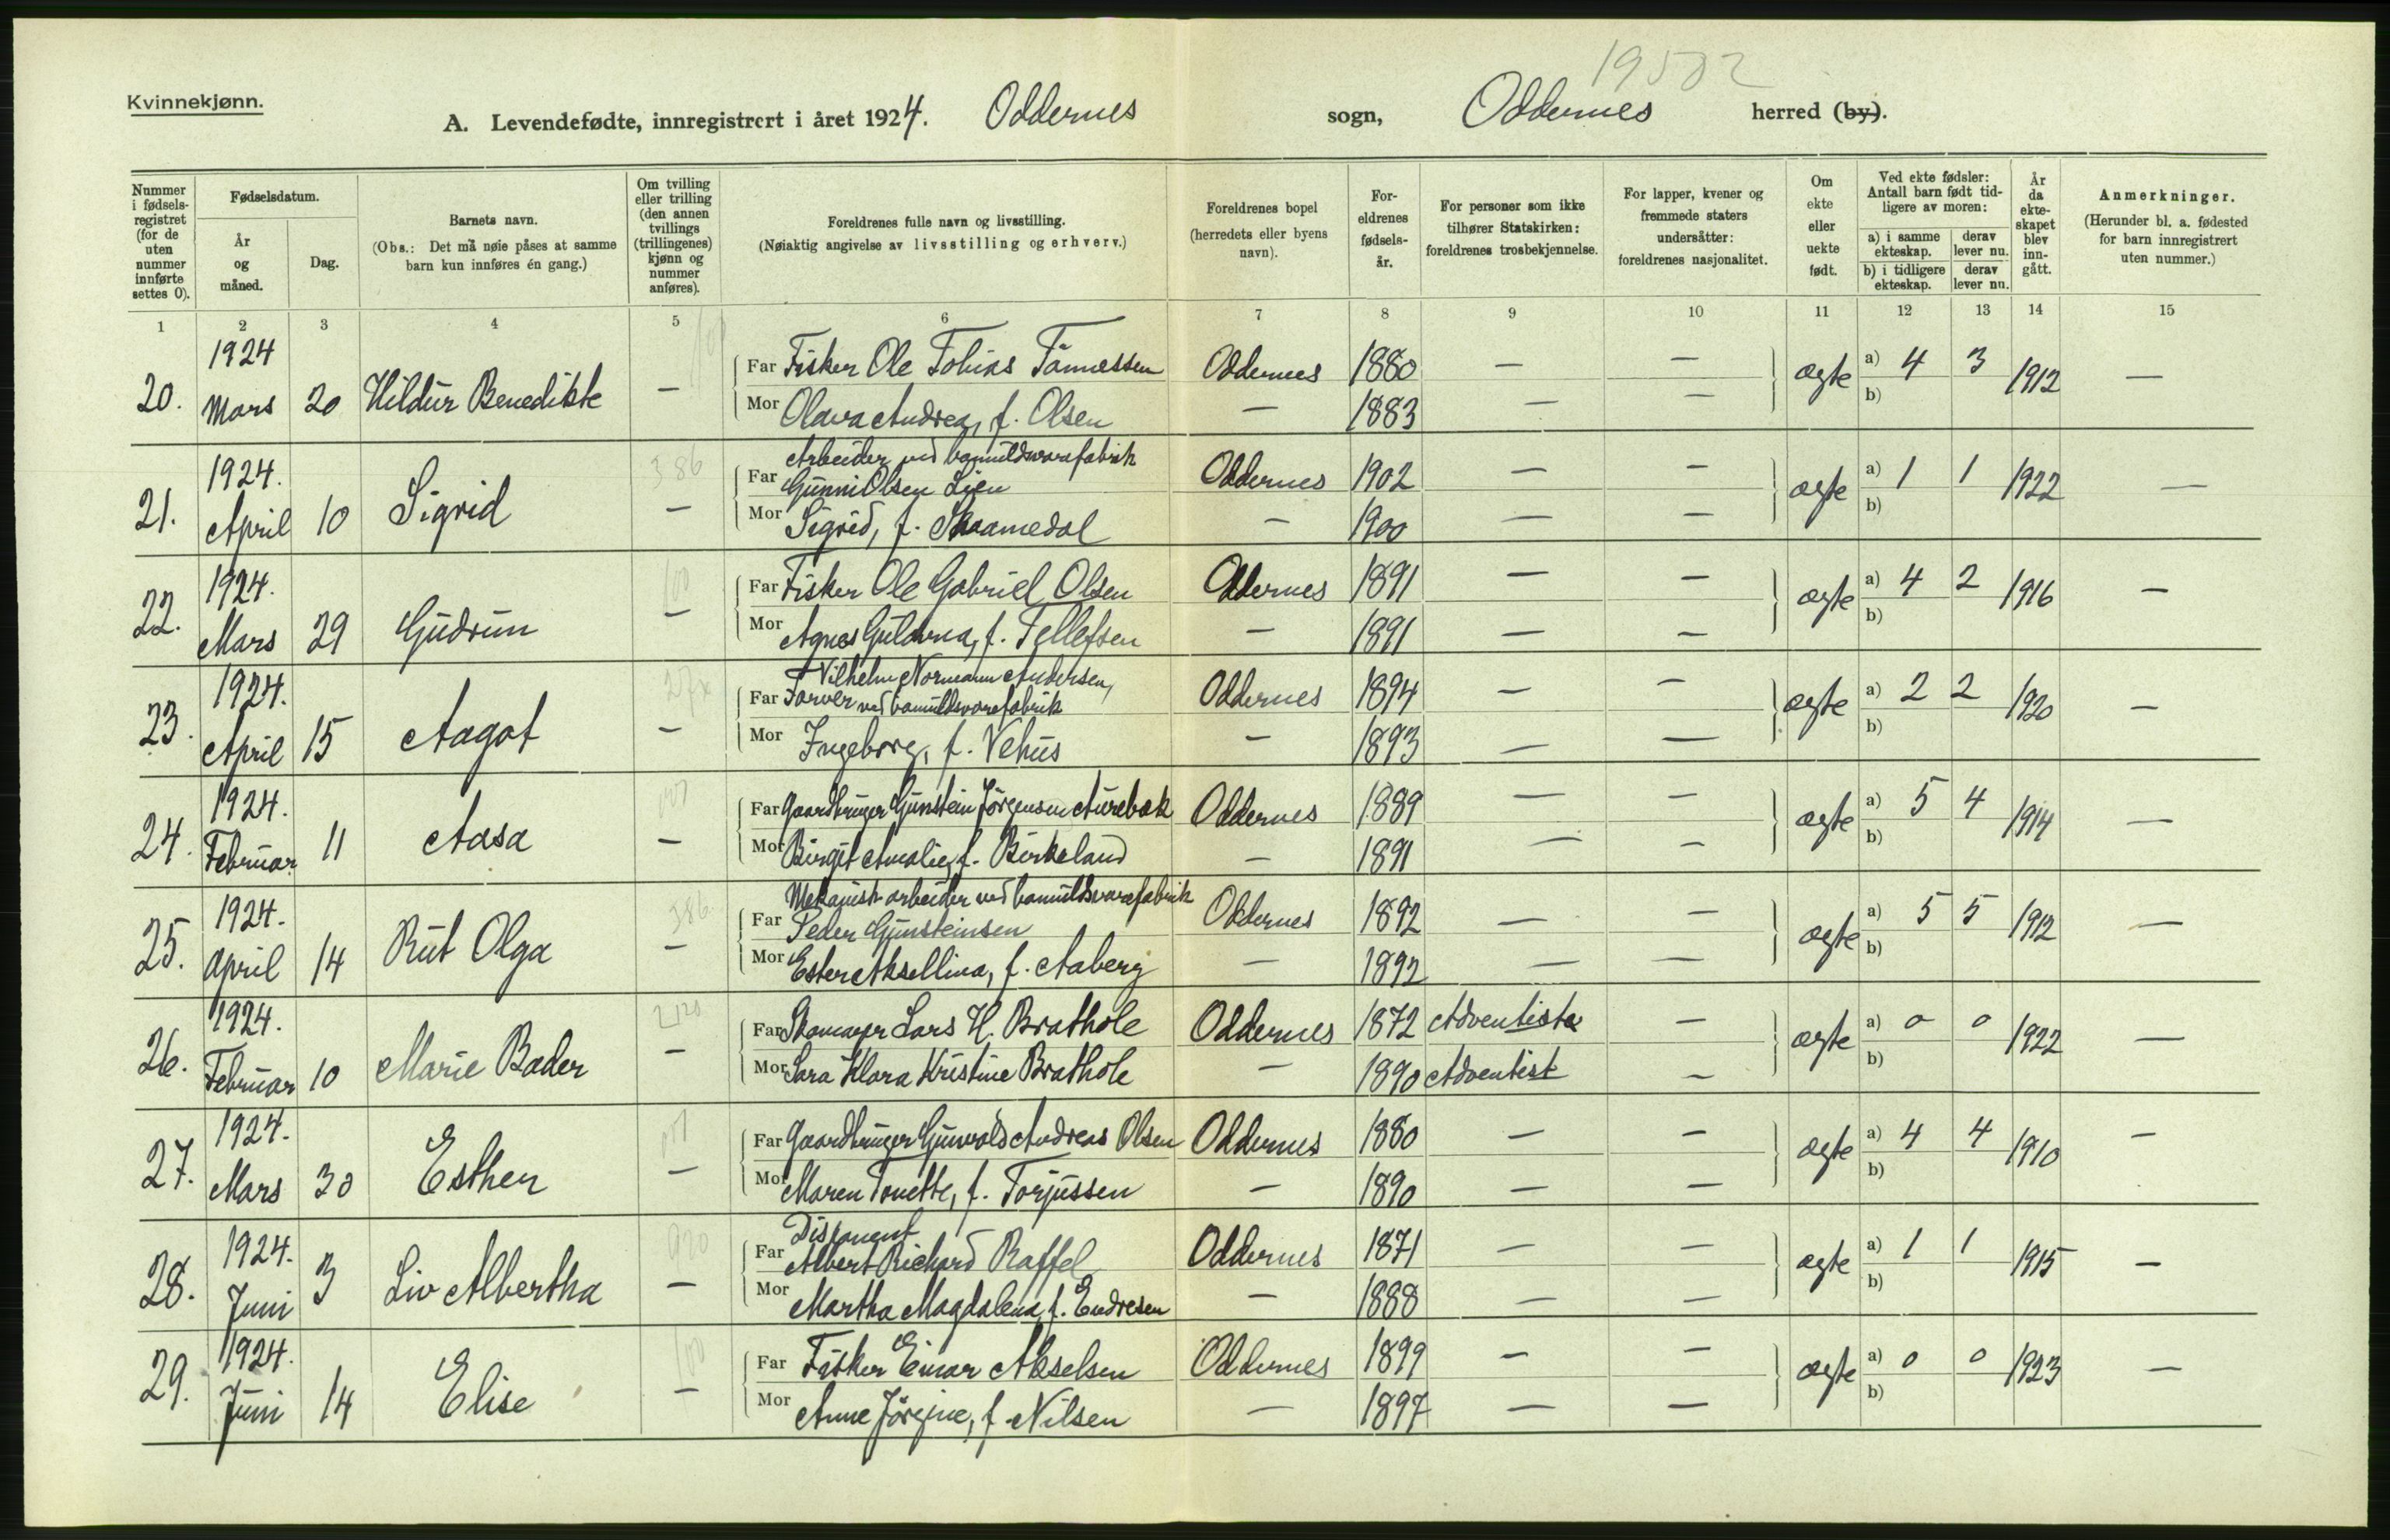 19502
Kvinnekjønn.
A. Levendefødte, innregistrert i året 1924. Oddernes sogn, Oddernes herred (by).
Nummer i fødsels-registret (for de uten nummer innførte settes 0).
Fødselsdatum.
År og måned.
Dag.
Barnets navn.
(Obs.: Det må nøie påses at samme barn kun innføres én gang.)
Om tvilling eller trilling (den annen tvillings (trillingenes) kjønn og nummer anføres).
Foreldrenes fulle navn og livsstilling.
(Nøiaktig angivelse av livsstilling og erhverv.)
Foreldrenes bopel (herredets eller byens navn).
For-eldrenes fødsels-år.
For personer som ikke tilhører Statskirken: foreldrenes trosbekjennelse.
For lapper, kvener og fremmede staters undersåtter: foreldrenes nasjonalitet.
Om ekte eller uekte født.
Ved ekte fødsler: Antall barn født tid-ligere av moren:
a) i samme ekteskap. derav lever nu.
b) i tidligere ekteskap. derav lever nu.
År da ekte-skapet blev inn-gått.
Anmerkninger.
(Herunder bl. a. fødested for barn innregistrert uten nummer.)
1 2 3 4 5 6 7 8 9 10 11 12 13 14 15
20. 1924 Mars 20 Hildur Benedikte — 100
Far Fisker Ole Tobias Tønnessen Oddernes 1880 — — ægte a) 4 3 1912 —
Mor Olava Andrea, f. Olsen — 1883 — — b)
21. 1924. April 10 Sigrid — 386
Arbeider ved bomuldsvarefabrik
Far Gunni Olsen Lien Oddernes 1902 — — ægte a) 1 1 1922 —
Mor Sigrid, f. Skaamedal — 1900 — — b)
22. 1924. Mars 29 Gudrun — 100
Far Fisker Ole Gabriel Olsen Oddernes 1891 — — ægte a) 4 2 1916 —
Mor Agnes Gutorma, f. Tellefsen — 1891 — — b)
23. 1924. April 15 Aagot —
Vilhelm Normann Andersen,
Far Farver ved bomuldsvarefabrik Oddernes 1894 — — ægte a) 2 2 1920 —
Mor Ingeborg, f. Vehus — 1893 — — b)
24. 1924. Februar 11 Aasa —
Far Gaardbruger Gunstein Jörgensen Aurebæk Oddernes 1889 — — ægte a) 5 4 1914 —
Mor Birgit Amalie, f. Birkeland — 1891 — — b)
25. 1924. April 14 Rut Olga — 386
Mekanisk arbeider ved bomuldsvarefabrik
Far Peder Gunsteinsen Oddernes 1892 — — ægte a) 5 5 1912 —
Mor Ester Aksellina, f. Aaberg — 1892 — — b)
26. 1924. Februar 10 Marie Bader —
Far Skomager Lars H. Brathole Oddernes 1872 Adventist — ægte a) 0 0 1922 —
Mor Sara Klara Kristine Brathole — 1890 Adventist — b)
27. 1924. Mars 30 Esther —
Far Gaardbruger Gunvald Andreas Olsen Oddernes 1880 — — ægte a) 4 4 1910 —
Mor Maren Tonette, f. Torjussen — 1890 — — b)
28. 1924. Juni 3 Liv Albertha — 920
Disponent
Far Albert Richard Raffel Oddernes 1871 — — ægte a) 1 1 1915 —
Mor Martha Magdalena, f. Endresen — 1888 — — b)
29. 1924. Juni 14 Elise — 100
Far Fisker Einar Akselsen Oddernes 1899 — — ægte a) 0 0 1923 —
Mor Anne Jörgine, f. Nilsen — 1897 — — b)